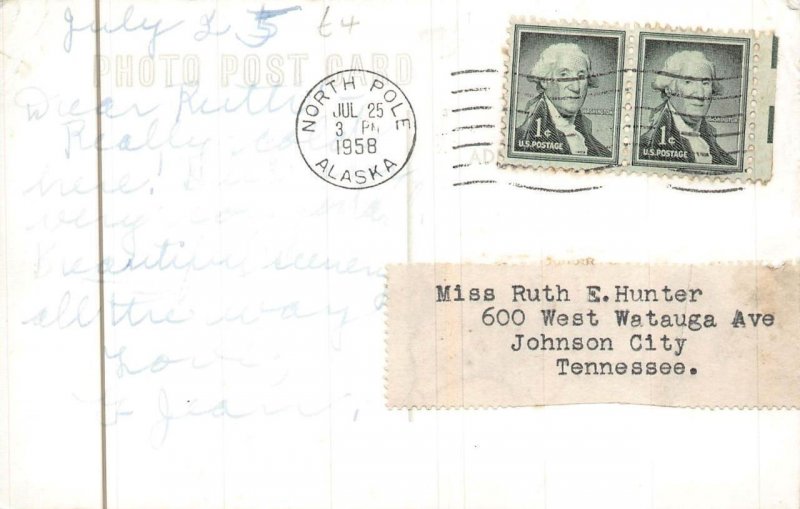 July 25 64
PHOTO POST CARD
Dear Ruth
Really
here!
very
Beautiful
all the way
Love,
Jean,
NORTH POLE
JUL 25
3 PM
1958
ALASKA
1¢
U.S. POSTAGE
1¢
U.S. POSTAGE
Miss Ruth E. Hunter
600 West Watauga Ave
Johnson City
Tennessee.